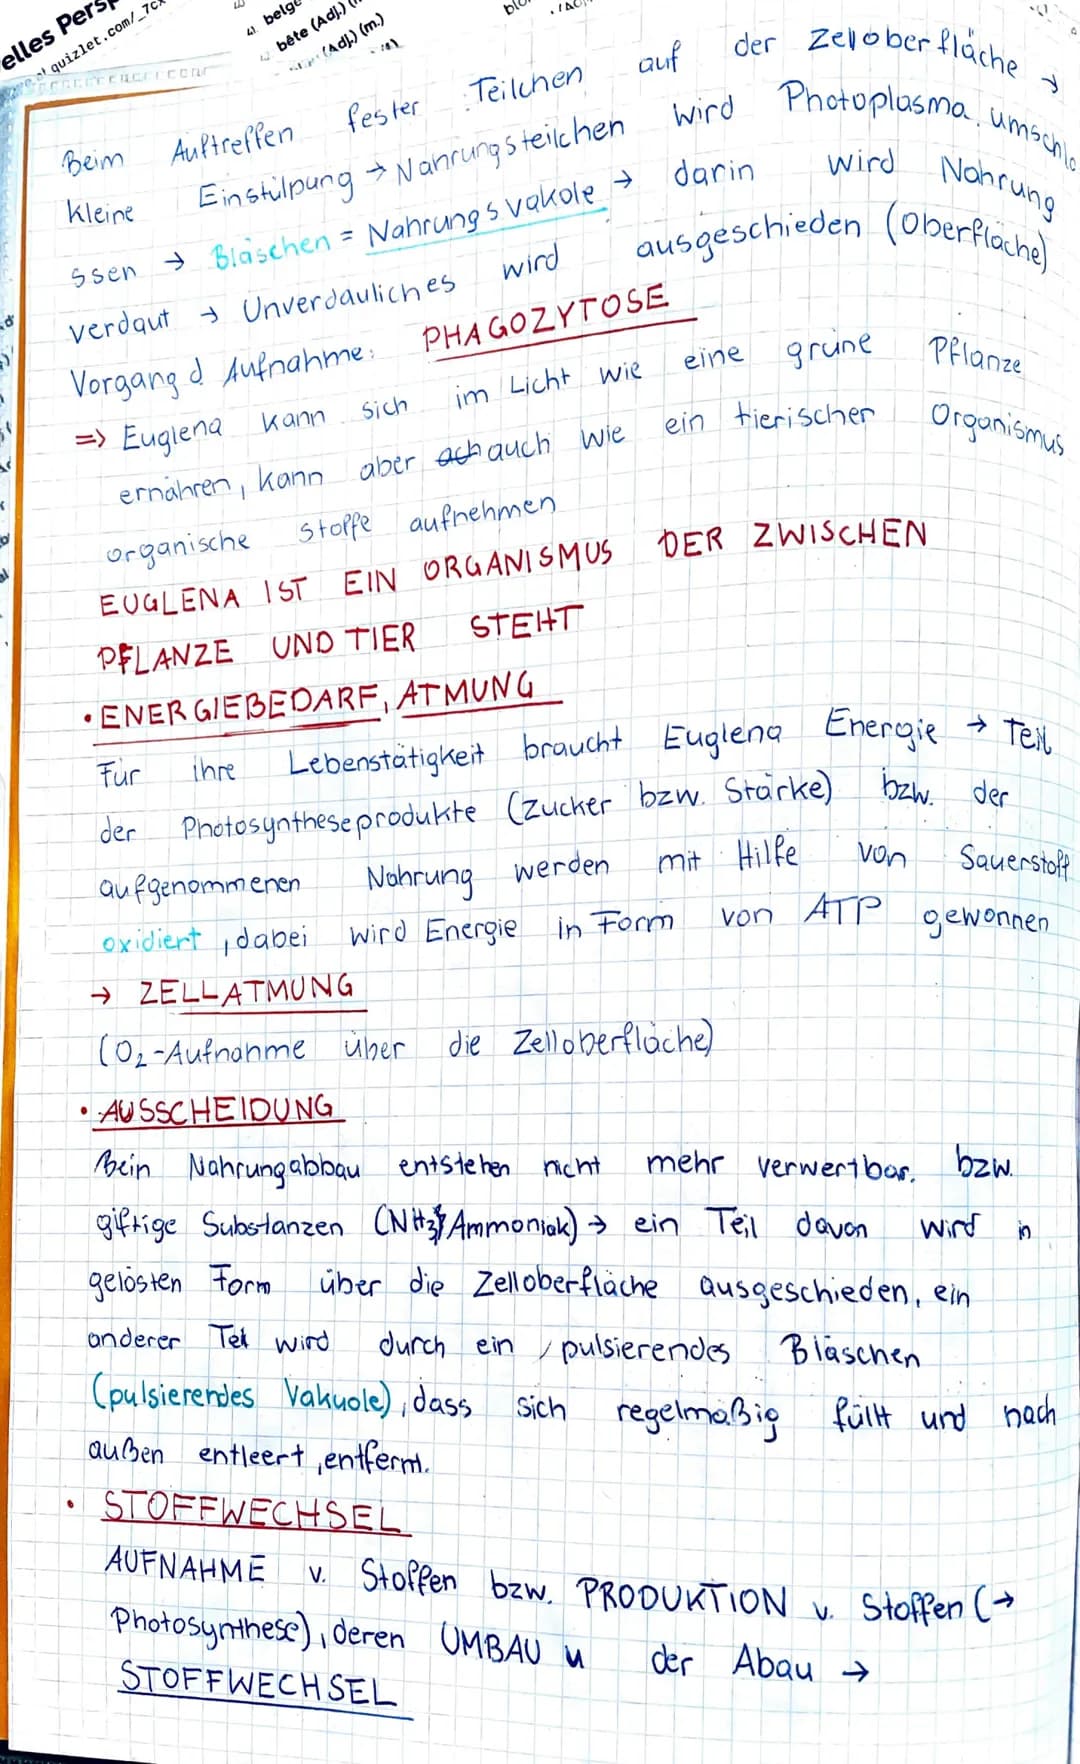 elles Persp
quizlet.com/_7cx
41. belge
bête (Adj.)
(Adj.) (m.)
Beim Auftreffen fester Teilchen auf der Zelloberfläche →
kleine Einstülpung → Nahrungsteilchen wird Photoplasma umschlo
ssen → Bläschen = Nahrungsvakole → darin wird Nahrung
verdaut → Unverdauliches wird ausgeschieden (Oberfläche)
Vorgang d. Aufnahme: PHAGOZYTOSE
=> Euglena kann sich im Licht wie eine grüne Pflanze
ernähren, kann aber ach auch wie ein tierischer Organismus
organische Stoffe aufnehmen
EUGLENA IST EIN ORGANISMUS DER ZWISCHEN
PFLANZE UND TIER STEHT
• ENERGIEBEDARF, ATMUNG
Für ihre Lebenstätigkeit braucht Euglena Energie → Teil
der Photosyntheseprodukte (Zucker bzw. Stärke) bzw. der
aufgenommenen Nahrung werden mit Hilfe von Sauerstoff
oxidiert, dabei wird Energie in Form von ATP gewonnen
→ ZELLATMUNG
(O2-Aufnahme über die Zelloberfläche)
• AUSSCHEIDUNG
Bein Nahrungabbau entstehen nicht mehr verwertbar. bzw.
giftige Substanzen (NH3 Ammoniak) → ein Teil davon wird in
gelösten Form über die Zelloberfläche ausgeschieden, ein
anderer Teil wird durch ein pulsierendes Bläschen
(pulsierendes Vakuole), dass sich regelmäßig füllt und nach
außen entleert, entfernt.
• STOFFWECHSEL
AUFNAHME v. Stoffen bzw. PRODUKTION v. Stoffen (→
Photosynthese), deren UMBAU u der Abau →
STOFFWECHSEL